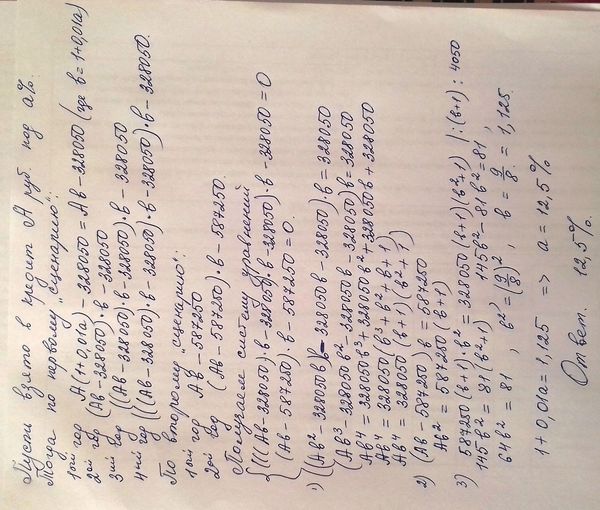 Пусть взято в кредит А руб. под а%.
Тогда по первому "сценарию":
1ый год А(1+0,01а) - 328050 = Ав - 328050 (где в = 1+0,01а)
2ой год (Ав - 328050)·в - 328050
3ий год ((Ав - 328050)·в - 328050)·в - 328050
4ый год (((Ав - 328050)·в - 328050)·в - 328050)·в - 328050.
По второму "сценарию":
1ый год Ав - 587250
2ой год (Ав - 587250)·в - 587250.
Получаем систему уравнений
{(((Ав - 328050)·в - 328050)·в - 328050)·в - 328050 = 0
(Ав - 587250)·в - 587250 = 0.
1) ((Ав² - 328050в) - 328050)в - 328050)·в = 328050
(Ав³ - 328050в² - 328050в - 328050)в = 328050
Ав⁴ = 328050в³ + 328050в² + 328050в + 328050
Ав⁴ = 328050(в³ + в² + в + 1)
Ав⁴ = 328050(в+1)(в²+1)
2) (Ав - 587250)в = 587250
Ав² = 587250(в+1)
3) 587250(в+1)·в² = 328050(в+1)(в²+1) |:(в+1) : 4050
145в² = 81(в²+1) 145в² - 81в² = 81,
64в² = 81 , в² = (9/8)², в = 9/8 = 1,125.
1+0,01а = 1,125 => а = 12,5%
Ответ. 12,5%.